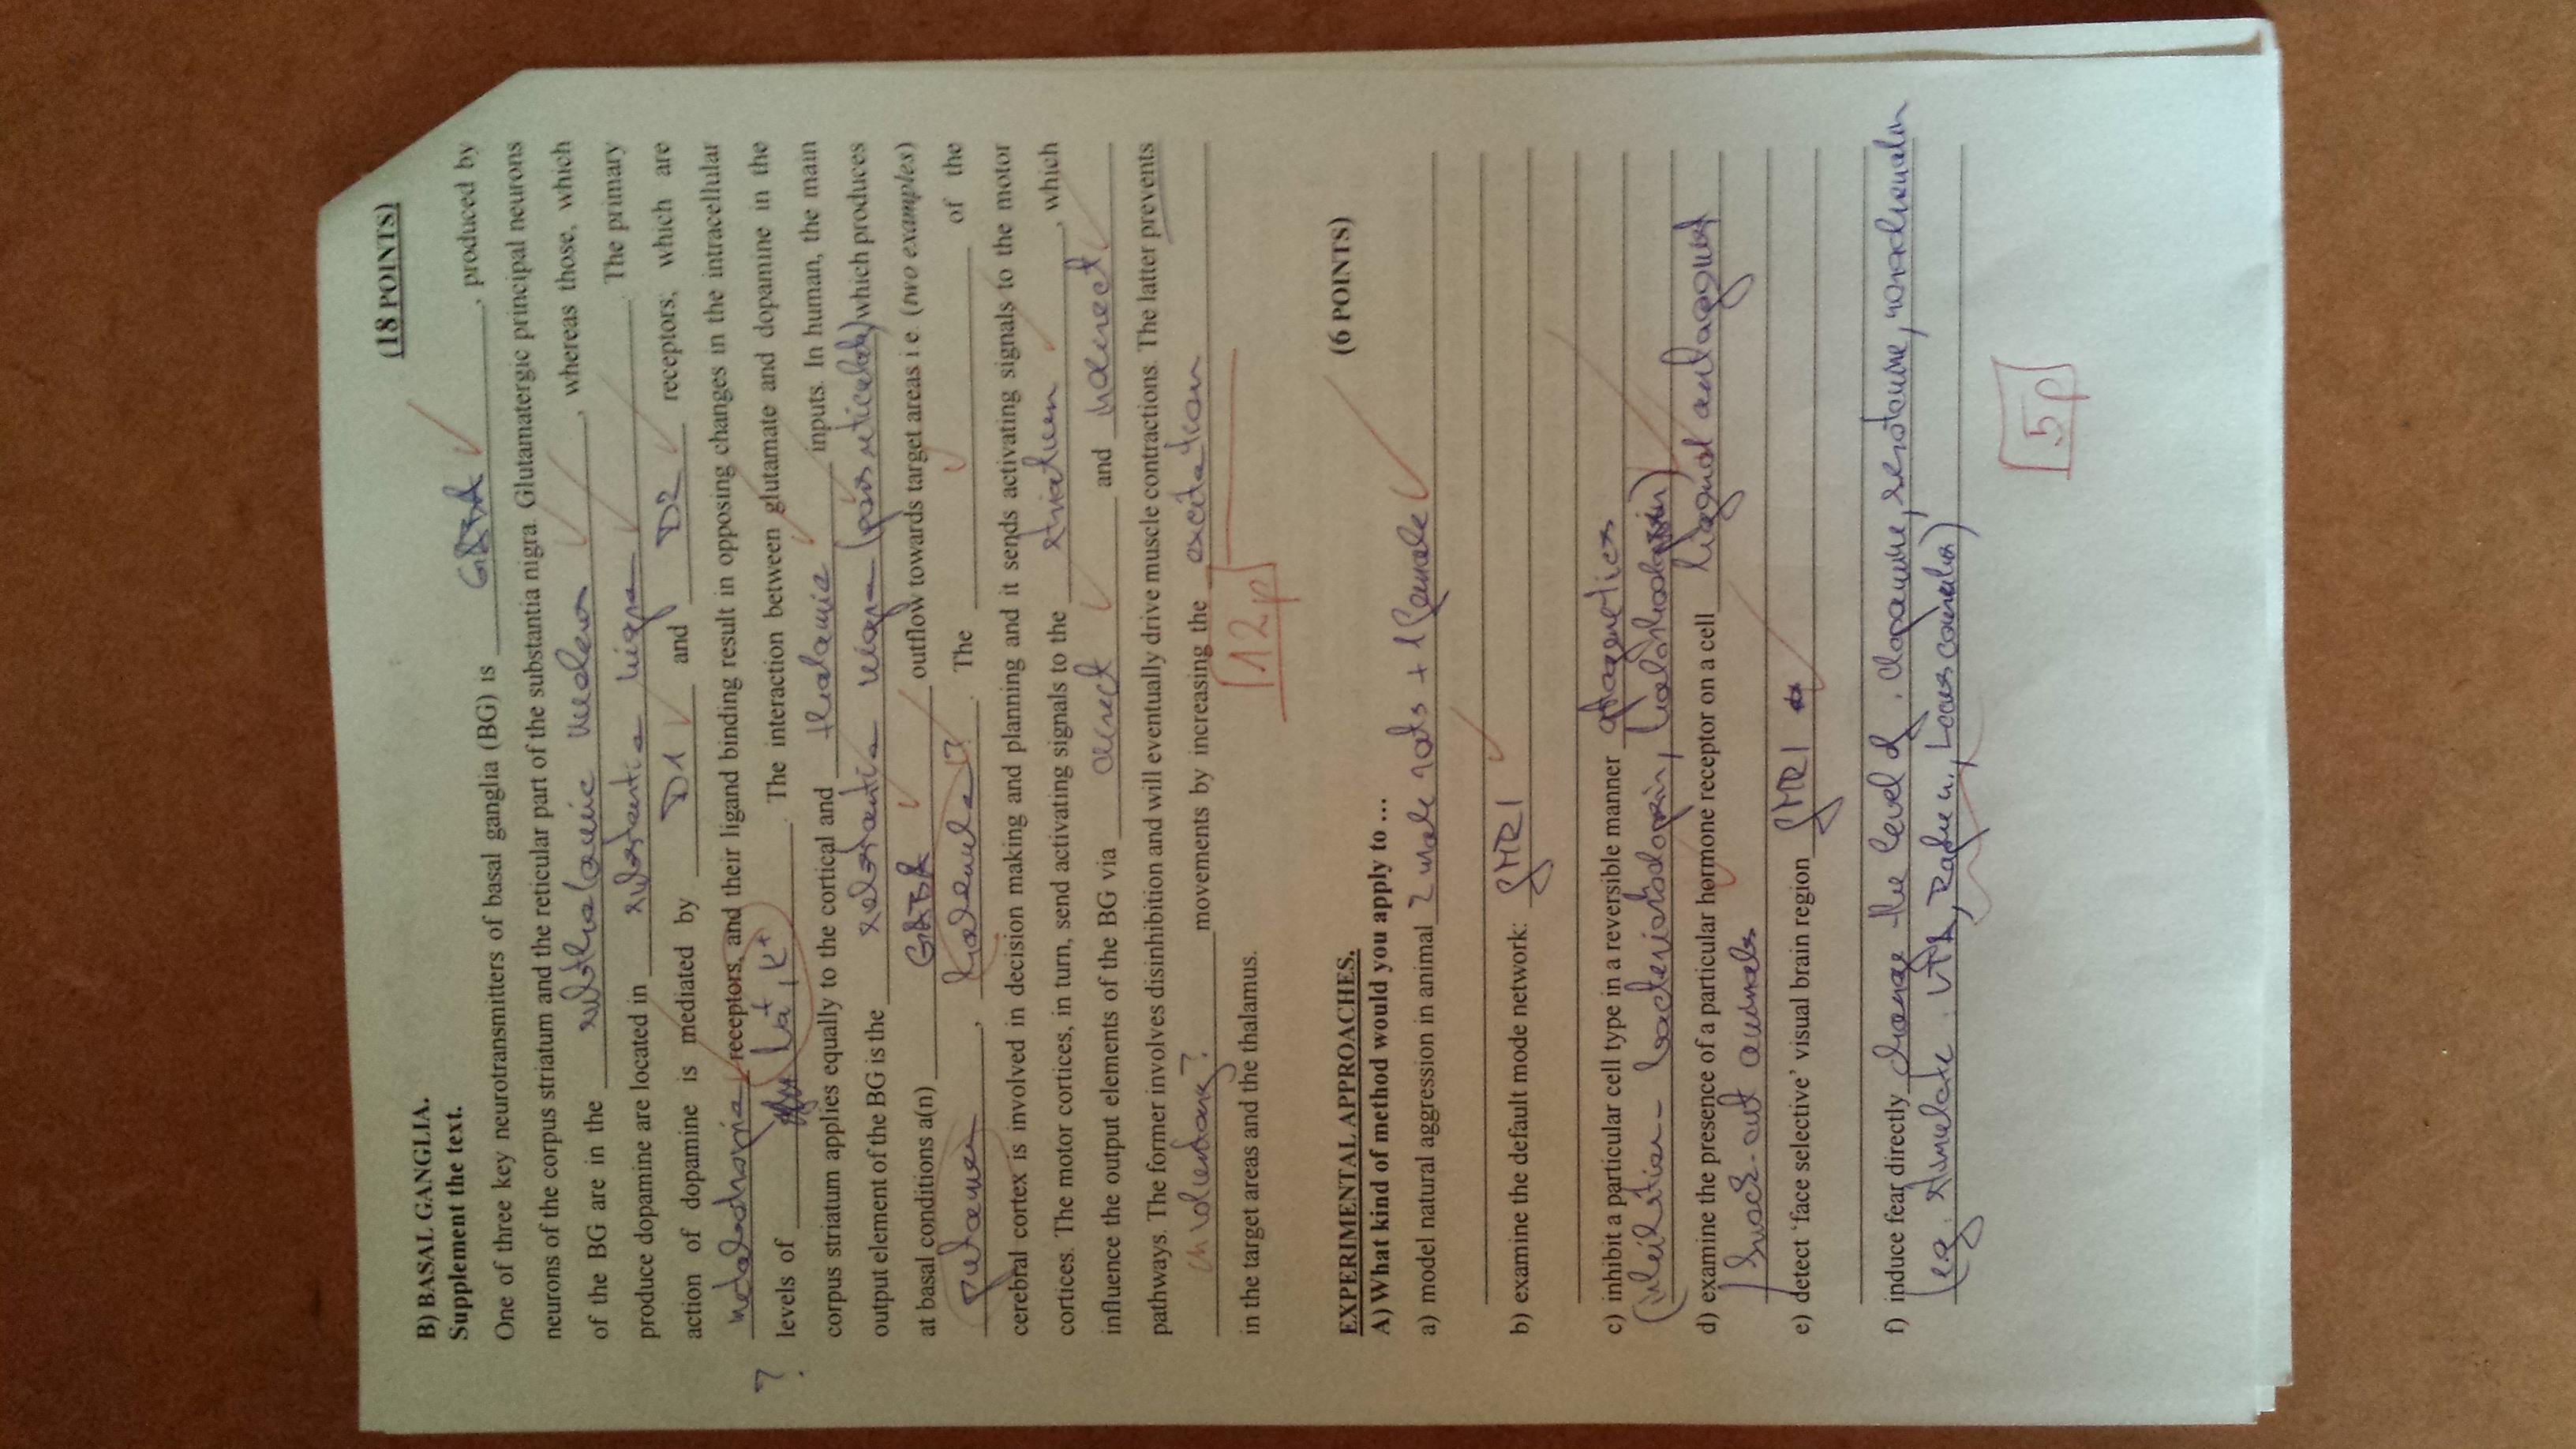 (18 POINTS)
B) BASAL GANGLIA.
Supplement the text.
One of three key neurotransmitters of basal ganglia (BG) is GABA, produced by
neurons of the corpus striatum and the reticular part of the substantia nigra. Glutamatergic principal neurons
of the BG are in the subthalamic nucleus, whereas those, which
produce dopamine are located in substantia nigra. The primary
action of dopamine is mediated by D1 and D2 receptors, which are
receptors, and their ligand binding result in opposing changes in the intracellular
? levels of Na+, K+. The interaction between glutamate and dopamine in the
corpus striatum applies equally to the cortical and thalamic inputs. In human, the main
output element of the BG is the substantia nigra (pars reticulata) which produces
at basal conditions a(n) GABA outflow towards target areas i.e. (two examples)
putamen, The of the
cerebral cortex is involved in decision making and planning and it sends activating signals to the motor
cortices. The motor cortices, in turn, send activating signals to the striatum, which
influence the output elements of the BG via direct and indirect
pathways. The former involves disinhibition and will eventually drive muscle contractions. The latter prevents
involuntary? movements by increasing the excitation
in the target areas and the thalamus.
12p
EXPERIMENTAL APPROACHES. (6 POINTS)
A) What kind of method would you apply to ...
a) model natural aggression in animal 2 male rats + 1 female
b) examine the default mode network: fMRI
c) inhibit a particular cell type in a reversible manner optogenetics
(inhibition - bacteriorhodopsin, halorhodopsin)
d) examine the presence of a particular hormone receptor on a cell ligand antagonist
/ knock-out animals
e) detect 'face selective' visual brain region fMRI
f) induce fear directly change the level of: dopamine, serotonine, noradrenalin
(eg. stimulate: VTA, Raphe n., Locus coeruleus)
5p